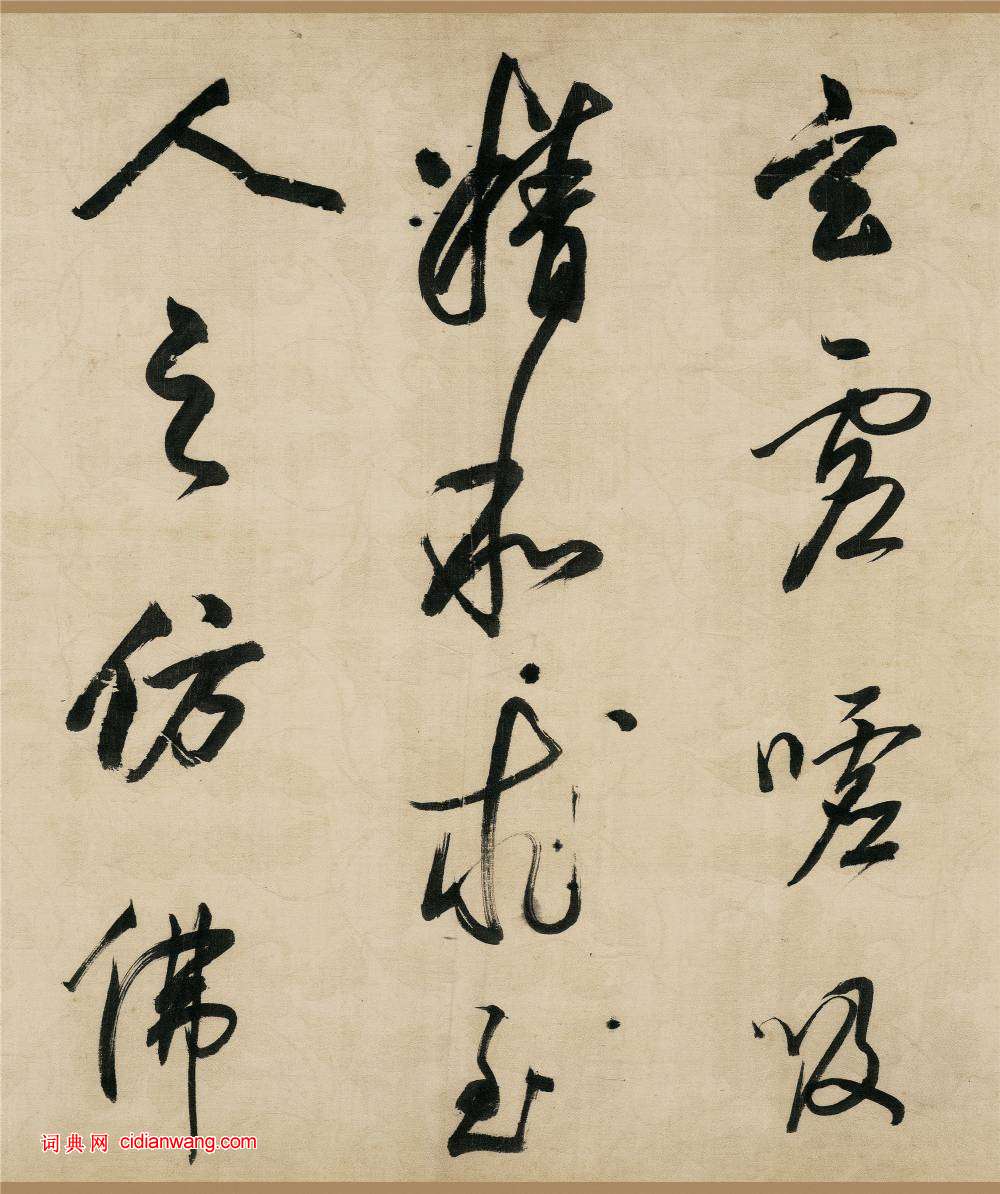 空虚嘘吸
精和求至
人之仿佛
词典网 cidianwang.com